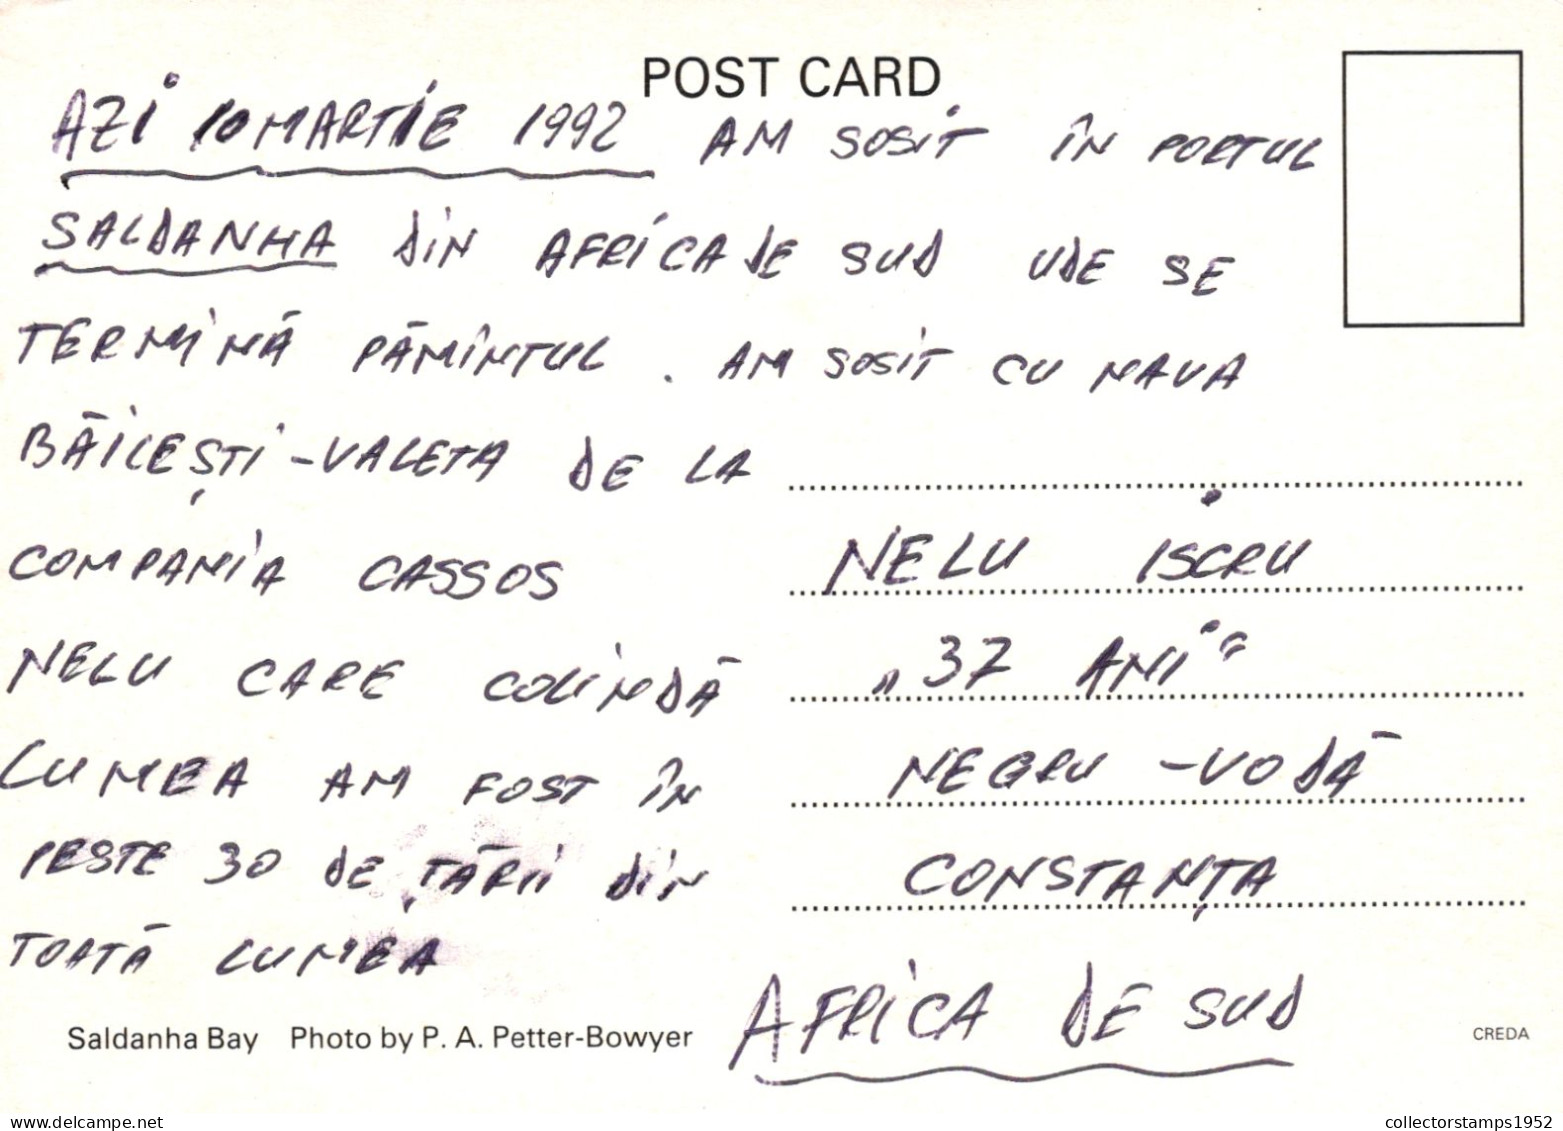 POST CARD
AZI 10 MARTIE 1992 AM SOSIT ÎN PORTUL
SALDANHA DIN AFRICA DE SUD UDE SE
TERMINĂ PĂMÎNTUL. AM SOSIT CU NAVA
BĂILEȘTI-VALETA DE LA
COMPANIA CASSOS
NELU CARE COLINDĂ
LUMEA AM FOST ÎN
PESTE 30 DE ȚĂRII DIN
TOATĂ LUMEA
NELU ISCRU
„37 ANI"
NEGRU-VODĂ
CONSTANȚA
AFRICA DE SUD
Saldanha Bay Photo by P. A. Petter-Bowyer
CREDA
collectorstamps1952